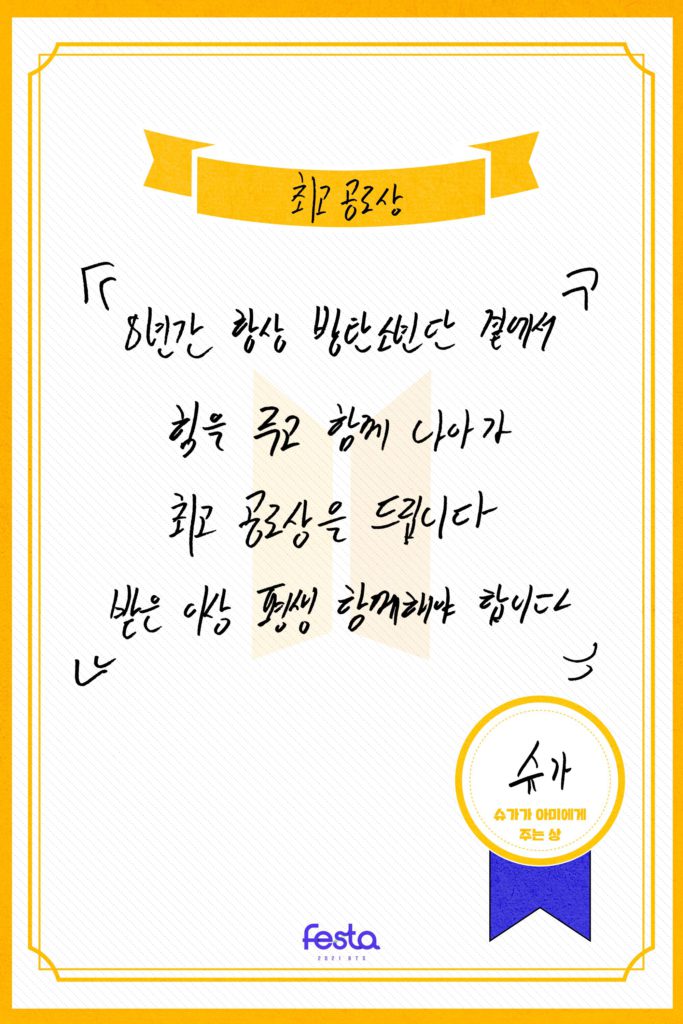 최고 공로상
8년간 항상 방탄소년단 곁에서
힘을 주고 함께 나아가
최고 공로상을 드립니다
받은 이상 평생 함께해야 합니다
슈가
슈가가 아미에게
주는 상
festa
2021 BTS